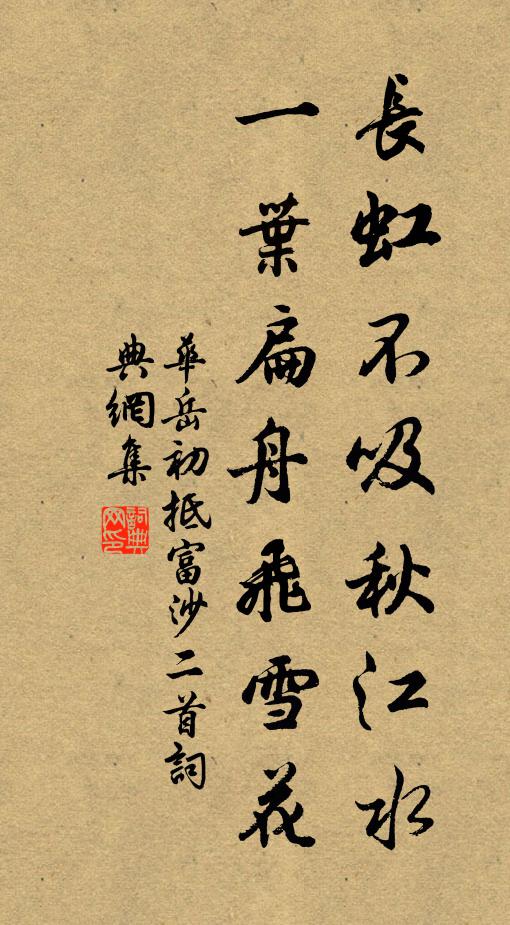 長虹不吸秋江水
一葉扁舟飛雪花
華岳初抵富沙二首詞
典網集
詞典網印